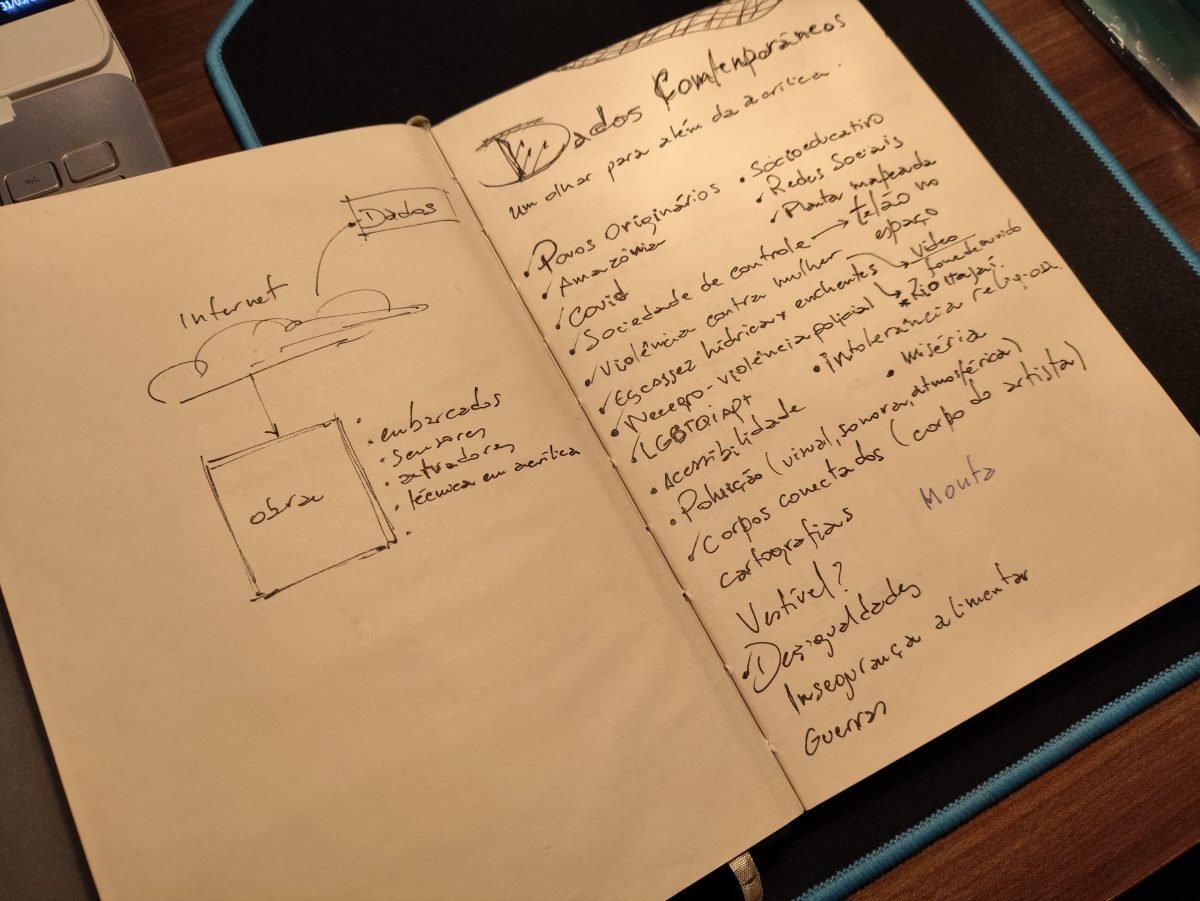 31/05/
+/-
Dados
Internet
obra
• embarcados
• sensores
• atuadores
• técnica em acrílica
•
Dados Contemporâneos
um olhar para além da acrílica.
✓ Povos Originários
• Socioeducativo
✓ Amazônia
• Redes Sociais
✓ Covid
✓ Planta mapeada
✓ Sociedade de controle → telão no espaço
✓ Violência contra mulher → vídeo
✓ Escassez hídrica x enchentes → fone de ouvido
* Rio Itajaí.
✓ Negro - violência policial
• intolerância religiosa.
✓ LGBTQIAP+
• miséria
• Acessibilidade
• Poluição (visual, sonora, atmosférica)
✓ Corpos conectados (corpo do artista)
cartografias
Vestível?
• Desigualdades
Insegurança alimentar
Guerras